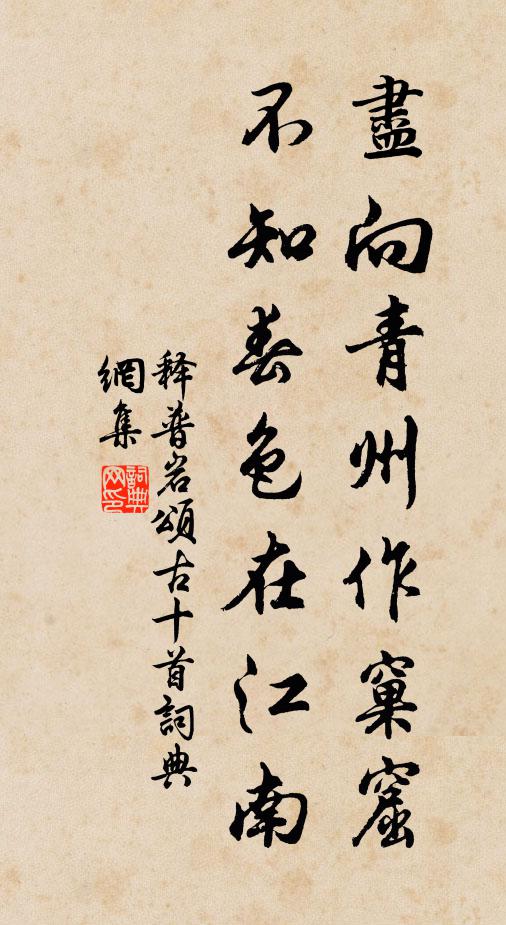 盡向青州作窠窟
不知春色在江南
释普岩頌古十首詞典
網集
詞典網印